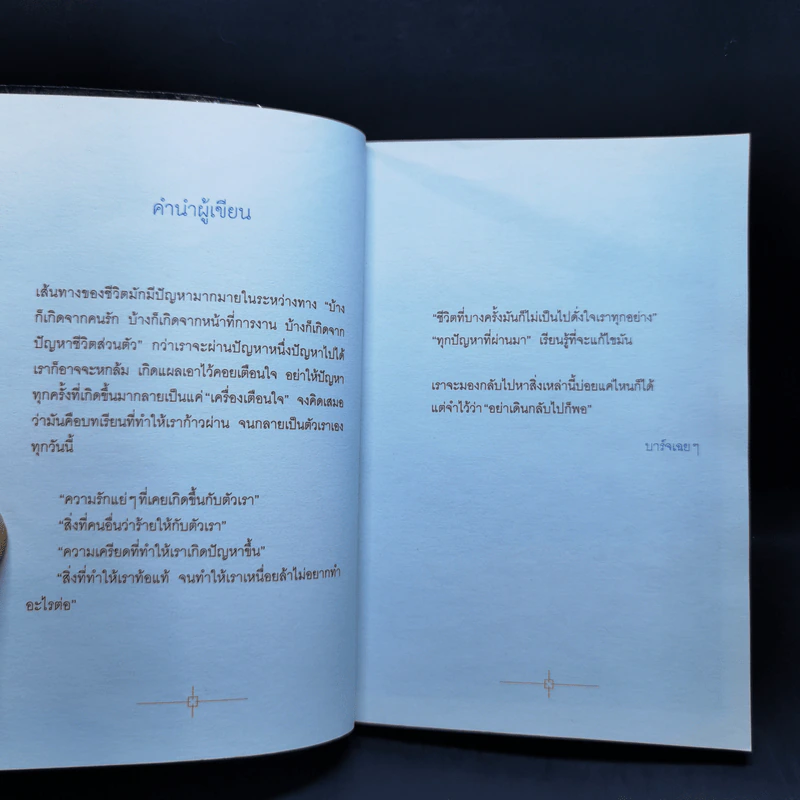 คำนำผู้เขียน
เส้นทางของชีวิตมักมีปัญหามากมายในระหว่างทาง “บ้าง
ก็เกิดจากคนรัก บ้างก็เกิดจากหน้าที่การงาน บ้างก็เกิดจาก
ปัญหาชีวิตส่วนตัว” กว่าเราจะผ่านปัญหาหนึ่งปัญหาไปได้
เราก็อาจจะหกล้ม เกิดแผลเอาไว้คอยเตือนใจ อย่าให้ปัญหา
ทุกครั้งที่เกิดขึ้นมากลายเป็นแค่ “เครื่องเตือนใจ” จงคิดเสมอ
ว่ามันคือบทเรียนที่ทำให้เราก้าวผ่าน จนกลายเป็นตัวเราเอง
ทุกวันนี้
“ความรักแย่ๆ ที่เคยเกิดขึ้นกับตัวเรา”
“สิ่งที่คนอื่นว่าร้ายให้กับตัวเรา”
“ความเครียดที่ทำให้เราเกิดปัญหาขึ้น”
“สิ่งที่ทำให้เราท้อแท้ จนทำให้เราเหนื่อยล้าไม่อยากทำ
อะไรต่อ”
“ชีวิตที่บางครั้งมันก็ไม่เป็นไปดั่งใจเราทุกอย่าง”
“ทุกปัญหาที่ผ่านมา” เรียนรู้ที่จะแก้ไขมัน
เราจะมองกลับไปหาสิ่งเหล่านี้บ่อยแค่ไหนก็ได้
แต่จำไว้ว่า “อย่าเดินกลับไปก็พอ”
บาร์จเฉยๆ